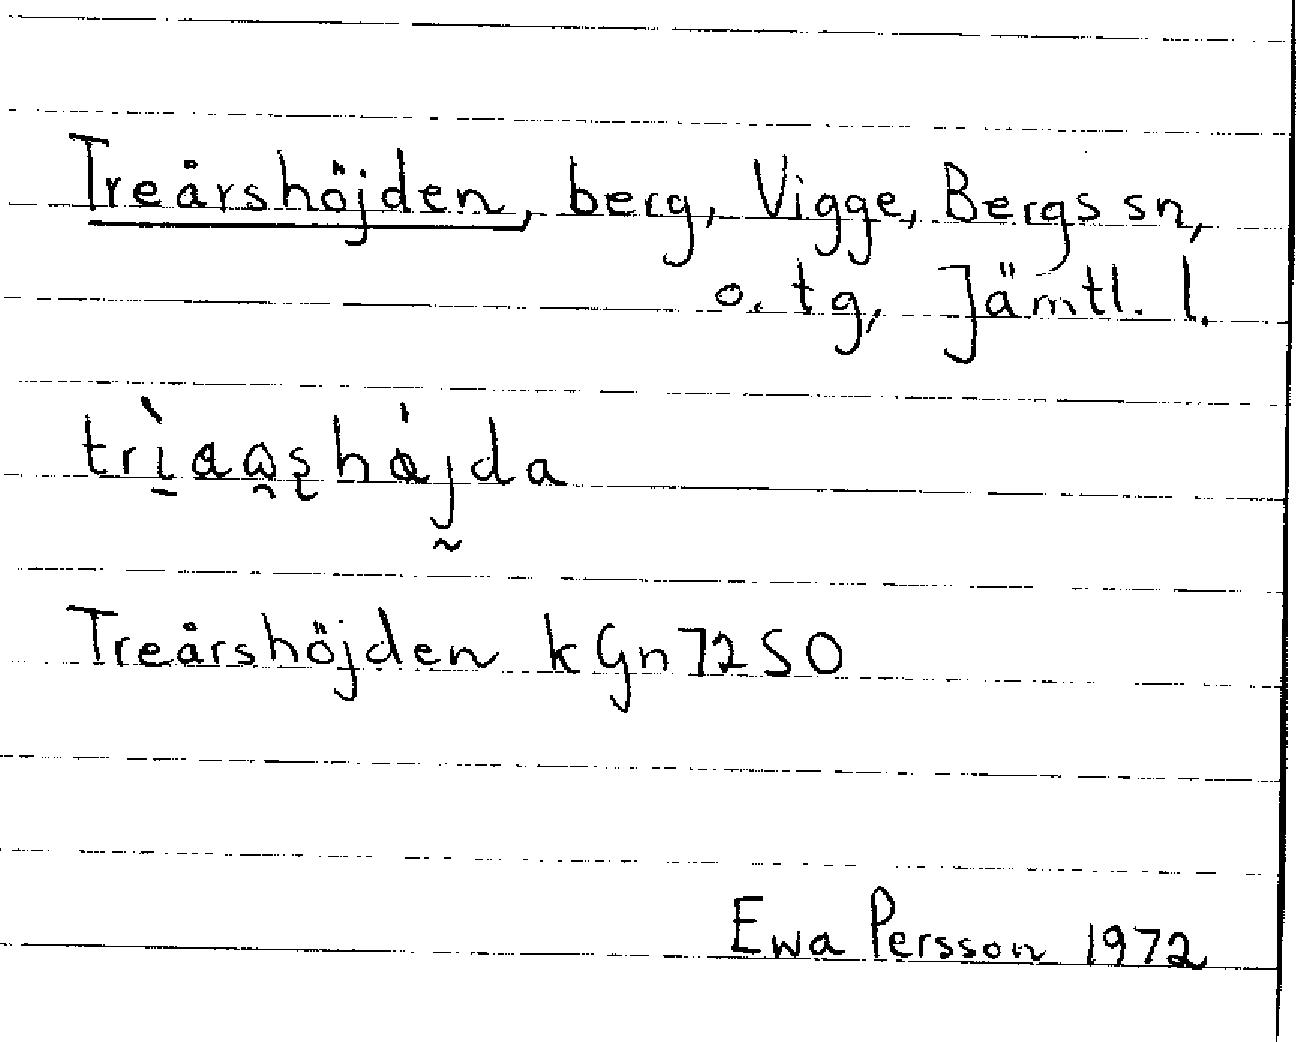 Treårshöjden, berg, Vigge, Bergs sn,
o. tg, Jämtl. l.
trìaas̨hájda
Treårshöjden kGn72SO
Ewa Persson 1972